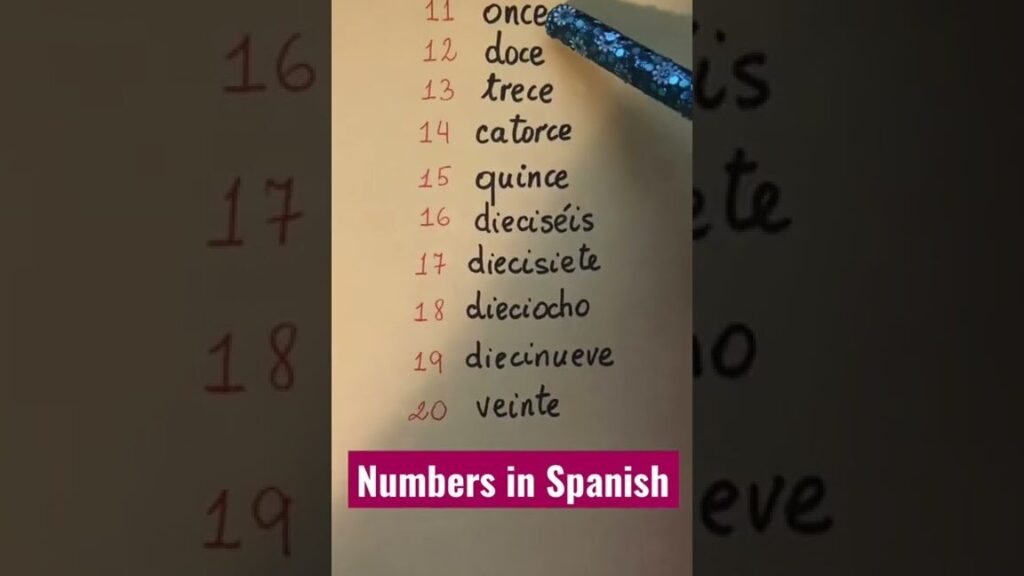 11 once
12 doce
13 trece
14 catorce
15 quince
16 dieciséis
17 diecisiete
18 dieciocho
19 diecinueve
20 veinte
Numbers in Spanish
16 is
17 ete
18 ho
19 eve